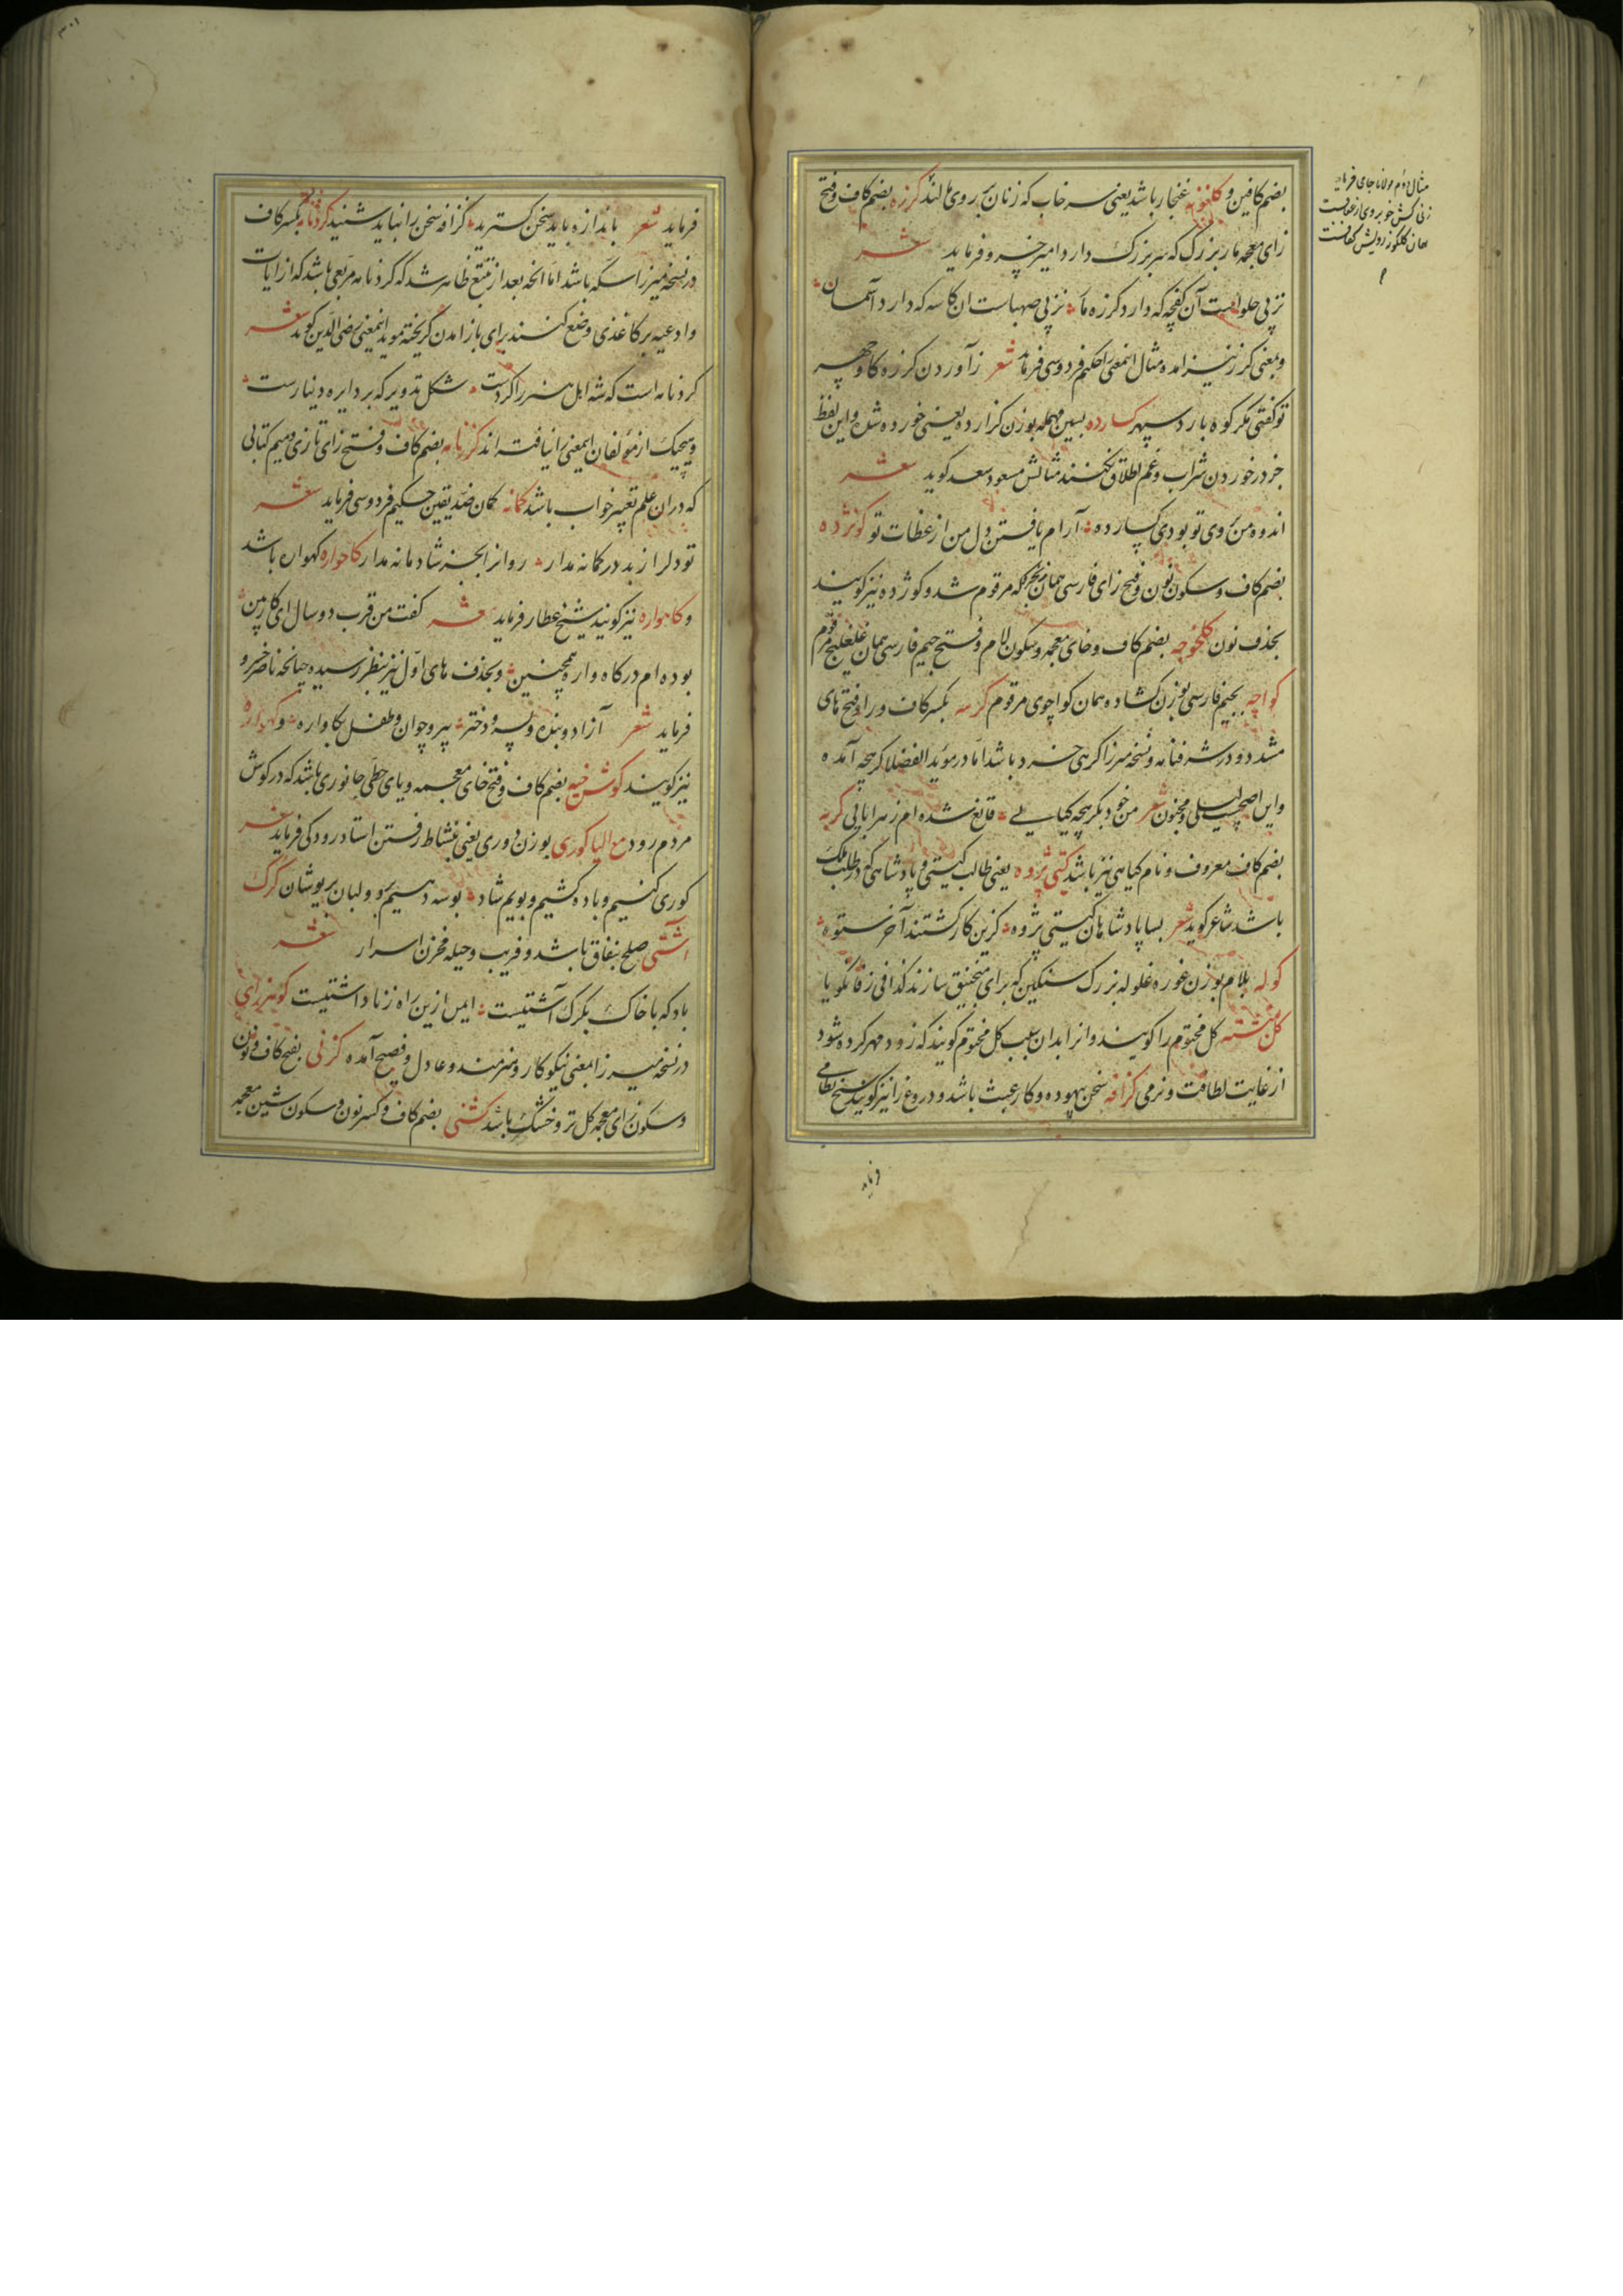 بضم کافین و کلغونه غنجار باشد یعنی سرخاب که زنان بر روی مالند کرزه بضم کاف و فتح
زای معجمه مار بزرک که سر بزرک دارد امیر خسرو فرماید شعر
نز پی حلواست آن کفچه که دارد کرزه مار نز پی صهباست ان کاسه که دارد آسمان
و بمعنی کرز نیز امده مثال اینمعنی را حکیم فردوسی فرماید شعر ز آوردن کرزه کاو چهر
تو کفتی مکر کوه بارد سپهر کسارده بسین مهمله بوزن کزارده یعنی خورده شده و این لفظ
جز در خوردن شراب و غم اطلاق نکنند مثالش مسعود سعد کوید شعر
اندوه من بروی تو بودی کسارده آرام یافتن دل من از عظات تو کونژده
بضم کاف و سکون نون و فتح زای فارسی همان که مرقوم شد و کوژده نیز کویند
بحذف نون کلخوچه بضم کاف و خای معجمه و سکون لام و فتح جیم فارسی همان غلغلیج مرقوم
کواچه بجیم فارسی بوزن کشاده همان کواچوی مرقوم کرسه بکسر کاف و را و فتح های
مشدد و در شرفنامه و نسخه میرزا کرهی خرد باشد اما در موید الفضلا کریچه آمده
و این اصح لیلی و مجنون شعر من خود بکریچه کیایی قانع شده ام ز هر ابایی کربه
بضم کاف معروف و نام کیاهی نیز باشد کیتی پژوه یعنی طالب کیتی و پادشاهی که در طلب ملک
باشد شاعر کوید شعر بسا پادشاهان کیتی پژوه کزین کار کشتند آخر ستوه
کوله بلام بوزن غوره غلوله بزرک سنکین که برای منجنیق سازند کذا فی زفانکویا
کل نبشته کل مختوم را کویند و انرا بدان سبب کل مختوم کویند که زود مهر کرده شود
از غایت لطافت و نرمی کزافه سخن بیهوده و کار عبث باشد و دروغ را نیز کویند شیخ نظامی
مثال دوم مولانا جامی فرماید
فرماید شعر باندازه باید سخن کسترید کزافه سخن را نباید شنید کردنامه بکسر کاف
در نسخه میرزا سکه باشد اما انچه بعد از تتبع ظاهر شد که کردنامه مربعی باشد که از ایات
و ادعیه بر کاغذی وضع کنند برای باز امدن کریخته موید اینمعنی رضی الدین کوید شعر
کردنامه است که شه اهل هنر را کردست شکل تدویر که بر دایره دینارست
و هیچیک از مولفان اینمعنی را نیافته اند کزنامه بضم کاف و فتح زای تازی و میم کتابی
که در ان علم تعبیر خواب باشد کمانه کمان ضد یقین حکیم فردوسی فرماید شعر
تو دل را ز بد در کمانه مدار روانرا بجز شادمانه مدار کاحواره کهواره باشد
و کاهواره نیز کویند شیخ عطار فرماید شعر کفت من قرب دو سال ای کارزمین
بوده ام در کاهواره همچنین و بحذف های اول نیز بنظر رسیده چنانچه ناصر خسرو
فرماید شعر آزاد و بنده و پسر و دختر پیر و جوان و طفل بکاواره و کهواره
نیز کویند کوش خیه بضم کاف و فتح خای معجمه و یای حطی جانوری باشد که در کوش
مردم رود مع الیا کوری بوزن دوری یعنی بنشاط رفتن استاد رودکی فرماید شعر
کوری کنیم و باده کشیم و بویم شاد بوسه دهیم بر دو لبان پریوشان کرک
آشتی صلح بنفاق باشد و فریب و حیله مخزن اسرار شعر
باد که با خاک بکرک آشتیست ایمن ازین راه ز ناداشتیست
در نسخه میرزا بمعنی نیکوکار و هنرمند و عادل و فصیح آمده کزنی بفتح کاف و نون
و سکون زای معجمه کل تر و خشک باشد کشنی بضم کاف و کسر نون و سکون شین معجمه